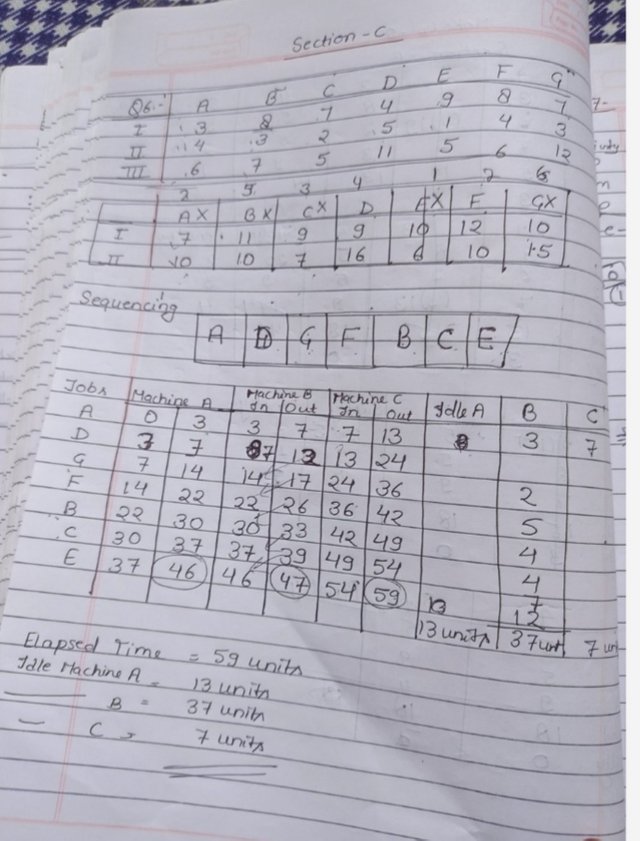 Section - C
Q6.- A B C D E F G
I 3 8 7 4 9 8 7
II 4 3 2 5 1 4 3
III 6 7 5 11 5 6 12
2 5 3 4 1 7 6
A X B X C X D E X F G X
I 7 11 9 9 10 12 10
II 10 10 7 16 6 10 15
Sequencing
A D G F B C E
Jobs Machine A Machine B Machine C Idle A B C
In Out In Out
A 0 3 3 7 7 13 3 7
D 3 7 7 12 13 24
G 7 14 14 17 24 36 2
F 14 22 22 26 36 42 5
B 22 30 30 33 42 49 4
C 30 37 37 39 49 54 4
E 37 46 46 47 54 59 7
13 12
13 units 37 unit 7 un
Elapsed Time = 59 units
Idle Machine A = 13 units
B = 37 units
C = 7 units